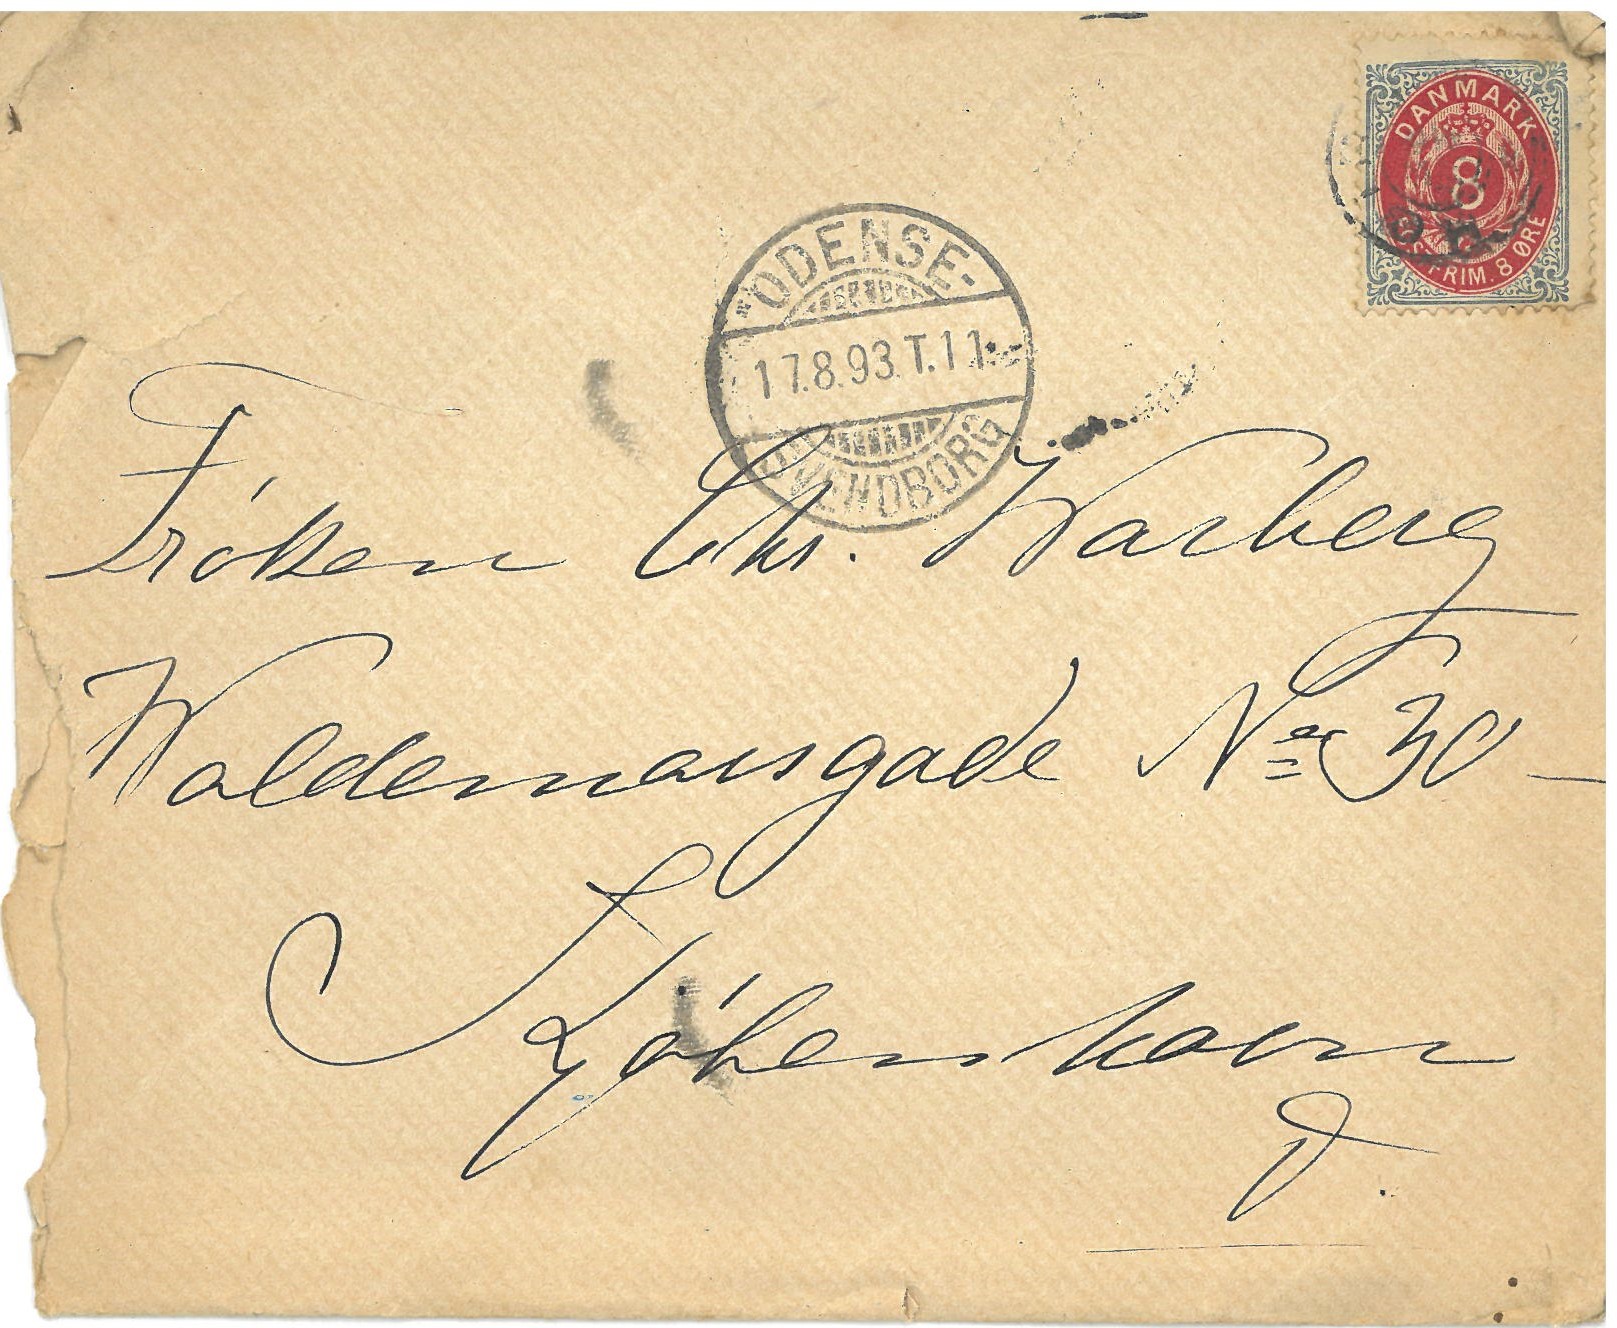 DANMARK
8
POSTFRIM. 8 ØRE
ODENSE-
17.8.93.T.11
SVENDBORG
Fröken Chr. Warberg
Waldemarsgade No 30
Kjöbenhavn
V.